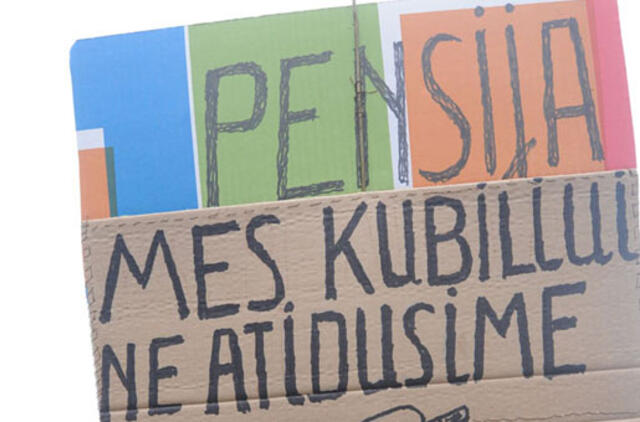 PENSIJA
MES KUBILIUI
NE ATIDUSIME